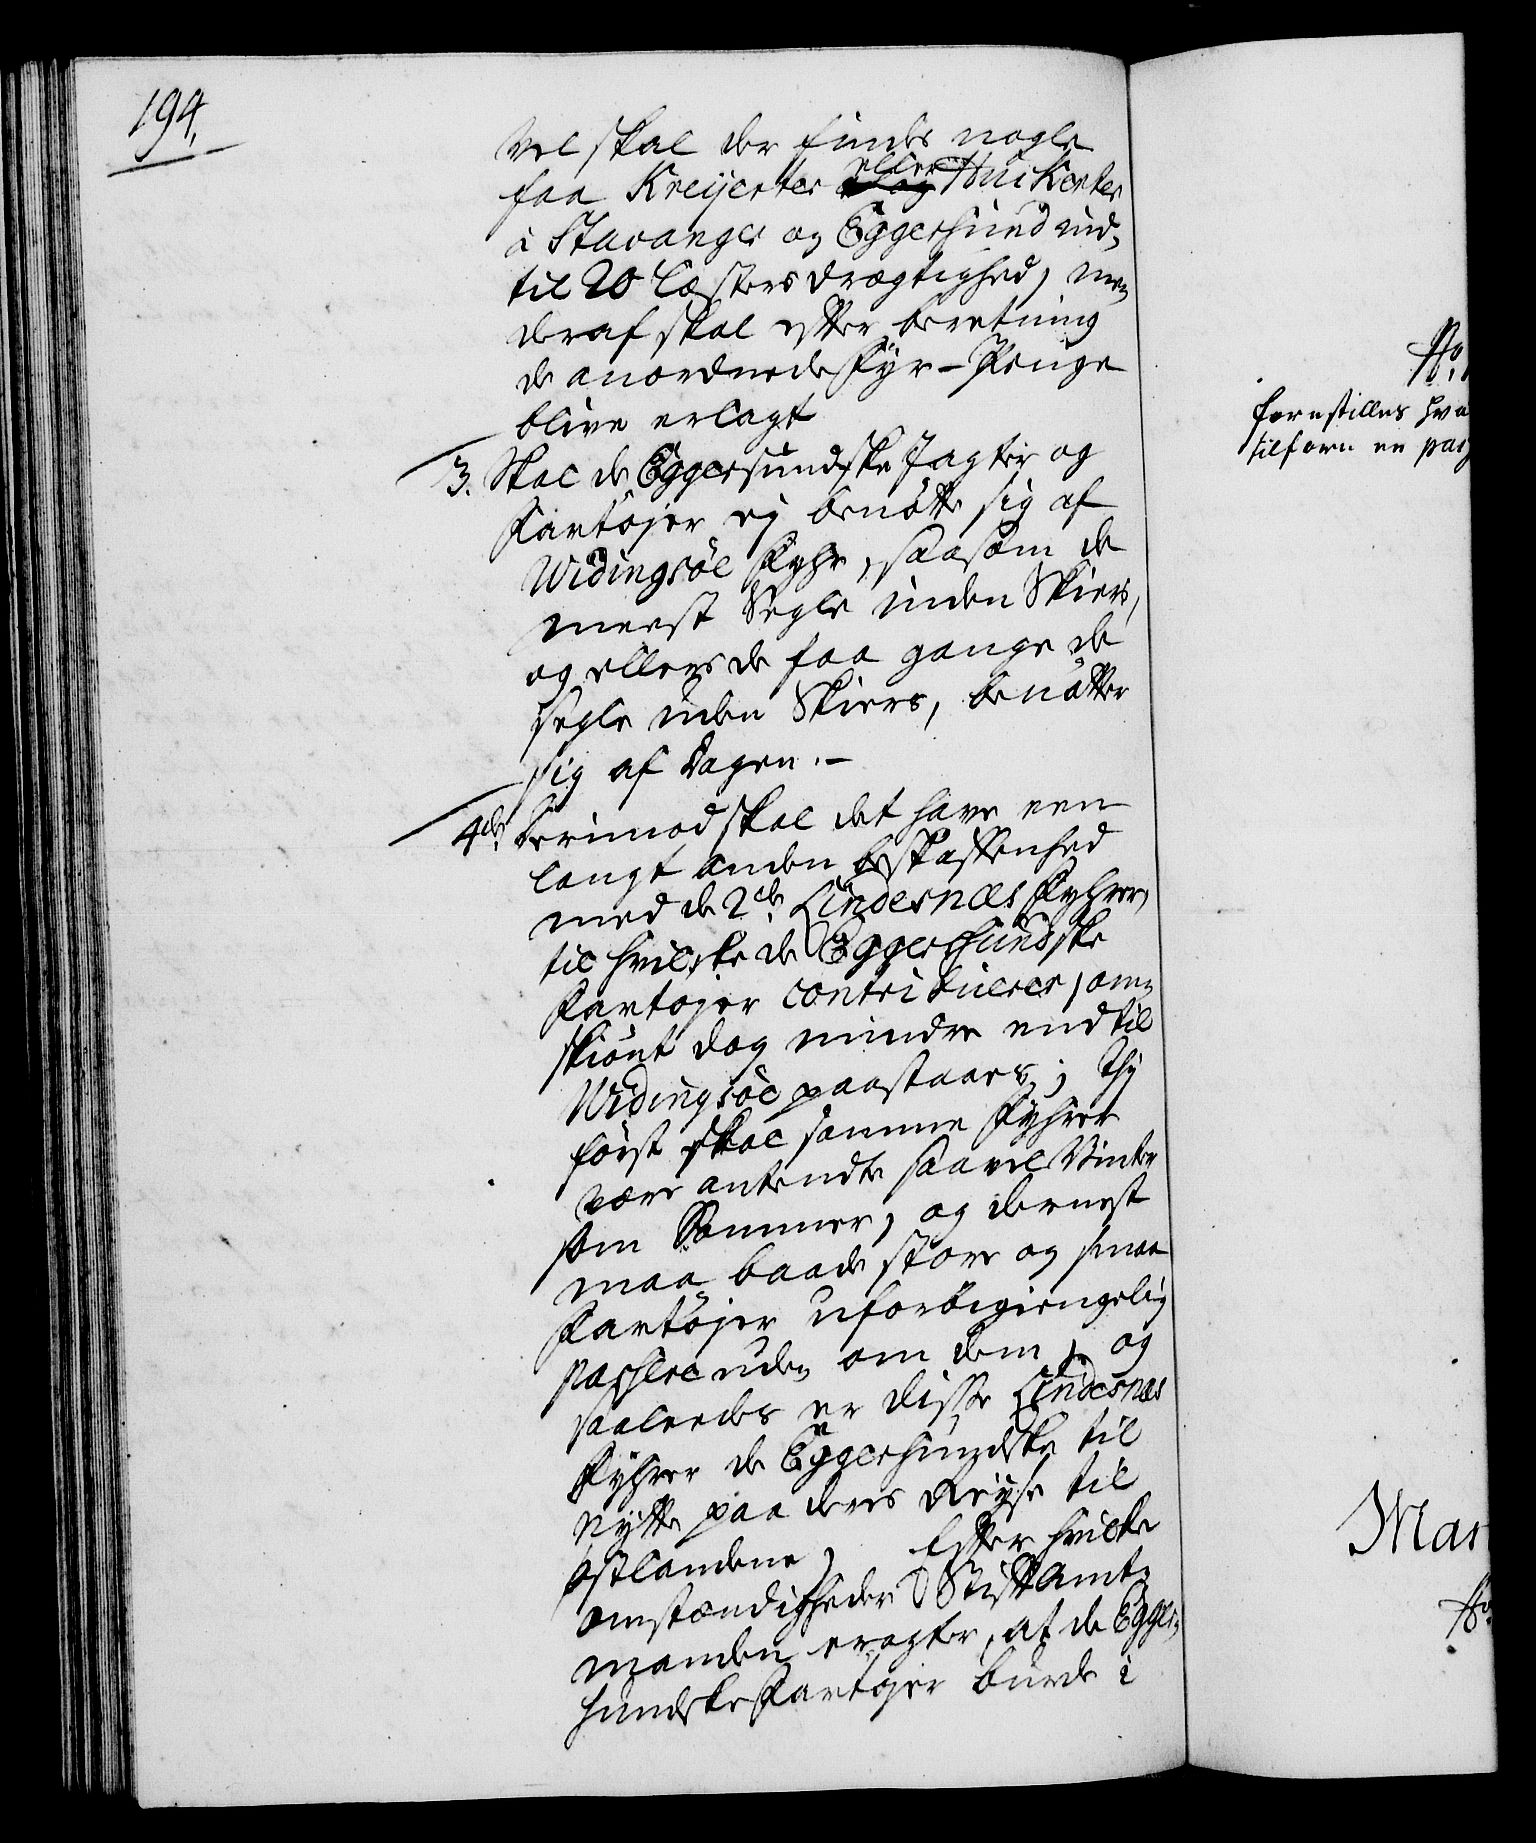 194.
Vel skal der findes nogle
faa Kreijerter eller Huckerter
i Stavanger og Eggersund ind¬
til 20 Læsters drægtighed, men
deraf skal efter beretning
de anordnede Fyr-Penge
blive erlagt
3. Skal de Eggersundske Jagter og
Fartøjer ej benøtte sig af
Widingsöe Fyhr, saasom de
meest Segle inden Skiers,
og ellers de faa gange de
segle uden Skiers, benøtter
sig af Dagen.-
4de. Derimod skal det have een
langt anden beskaffenhed
med de 2de Lindesnæs Fyhrer,
til hvilke de Eggersundske
Fartøjer contribuerer, om¬
skiønt dog mindre end til
Widingsöe paastaaes; Thj
først skal samme Fyhrer
være antendte saavel Vinter
som Sommer, og dernest
maa baade store og smaa
Fartøjer uforbigiengelig
passere uden om dem, og
saaledes er disse Lindesnæs
Fyhrer de Eggersundske til
Nytte paa deres Reyse til
Østlandene, Efter hvilke
omstændigheder Stiftamt¬
manden eragter, at de Egger¬
sundske Fartøjer burde i
forestilles hva
tilforn en pas
Mar